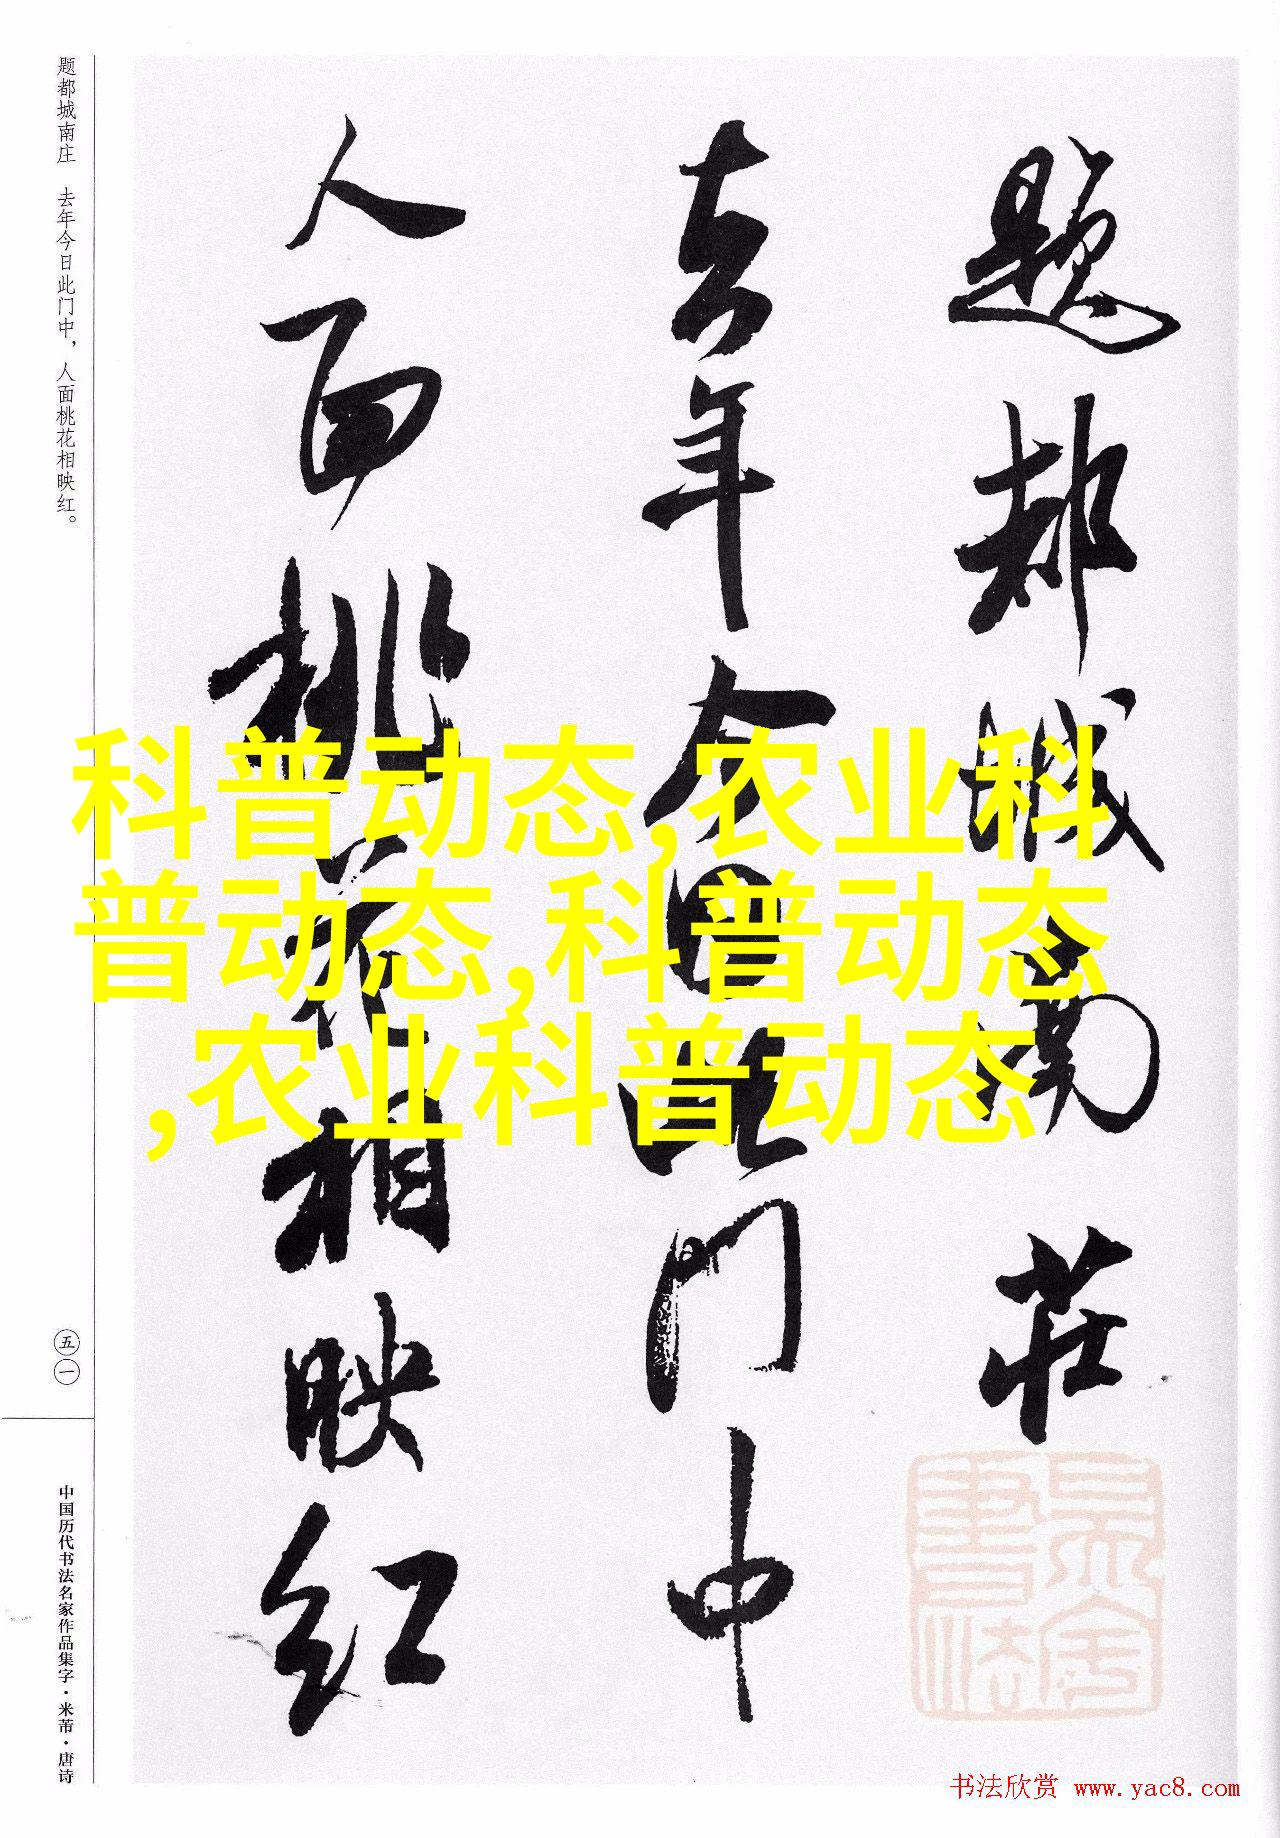 题都城南庄　去年今日此门中，人面桃花相映红。
题都城南莊
去年今日此门中
人面桃花相映红
科普动态,农业科
普动态,科普动态
,农业科普动态
五一
中国历代书法名家作品集字·米芾·唐诗
书法欣赏 www.yac8.com